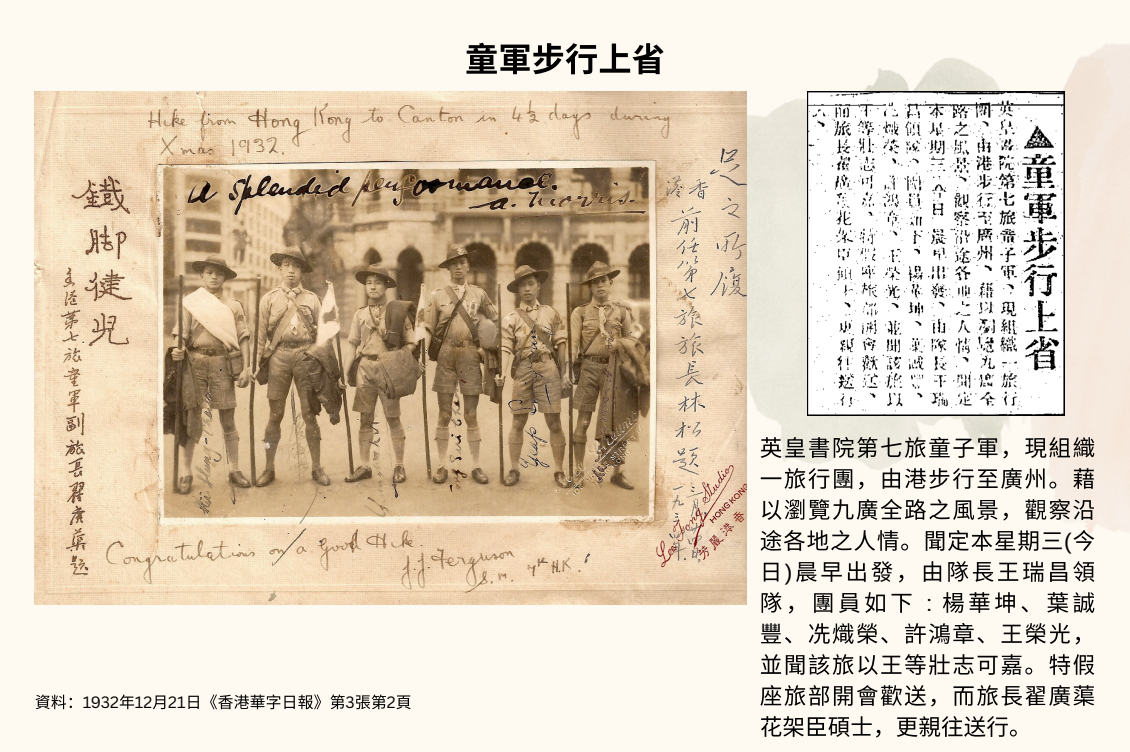 童軍步行上省
Hike from Hong Kong to Canton in 4½ days during
Xmas 1932.
A splendid performance.
a. morris.
鐵脚健児
香港第七旅童軍副旅長翟廣蕖題
足之所履
香港前任第七旅旅長林松題
Congratulations on a good Hike.
J.J. Ferguson
S.M. 7th H.K.
Studio
HONG KONG
香港
▲童軍步行上省
英皇書院第七旅童子軍、現組織一旅行
團、由港步行至廣州、藉以瀏覽九廣全
路之風景、觀察沿途各地之人情、聞定
本星期三(今日)晨早出發、由隊長王瑞
昌領隊、團員如下、楊華坤、葉誠豐、
冼熾榮、許鴻章、王榮光、並聞該旅以
王等壯志可嘉、特假座旅部開會歡送、
而旅長翟廣蕖花架臣碩士、更親往送行
英皇書院第七旅童子軍，現組織
一旅行團，由港步行至廣州。藉
以瀏覽九廣全路之風景，觀察沿
途各地之人情。聞定本星期三(今
日)晨早出發，由隊長王瑞昌領
隊，團員如下：楊華坤、葉誠
豐、冼熾榮、許鴻章、王榮光，
並聞該旅以王等壯志可嘉。特假
座旅部開會歡送，而旅長翟廣蕖
花架臣碩士，更親往送行。
資料：1932年12月21日《香港華字日報》第3張第2頁